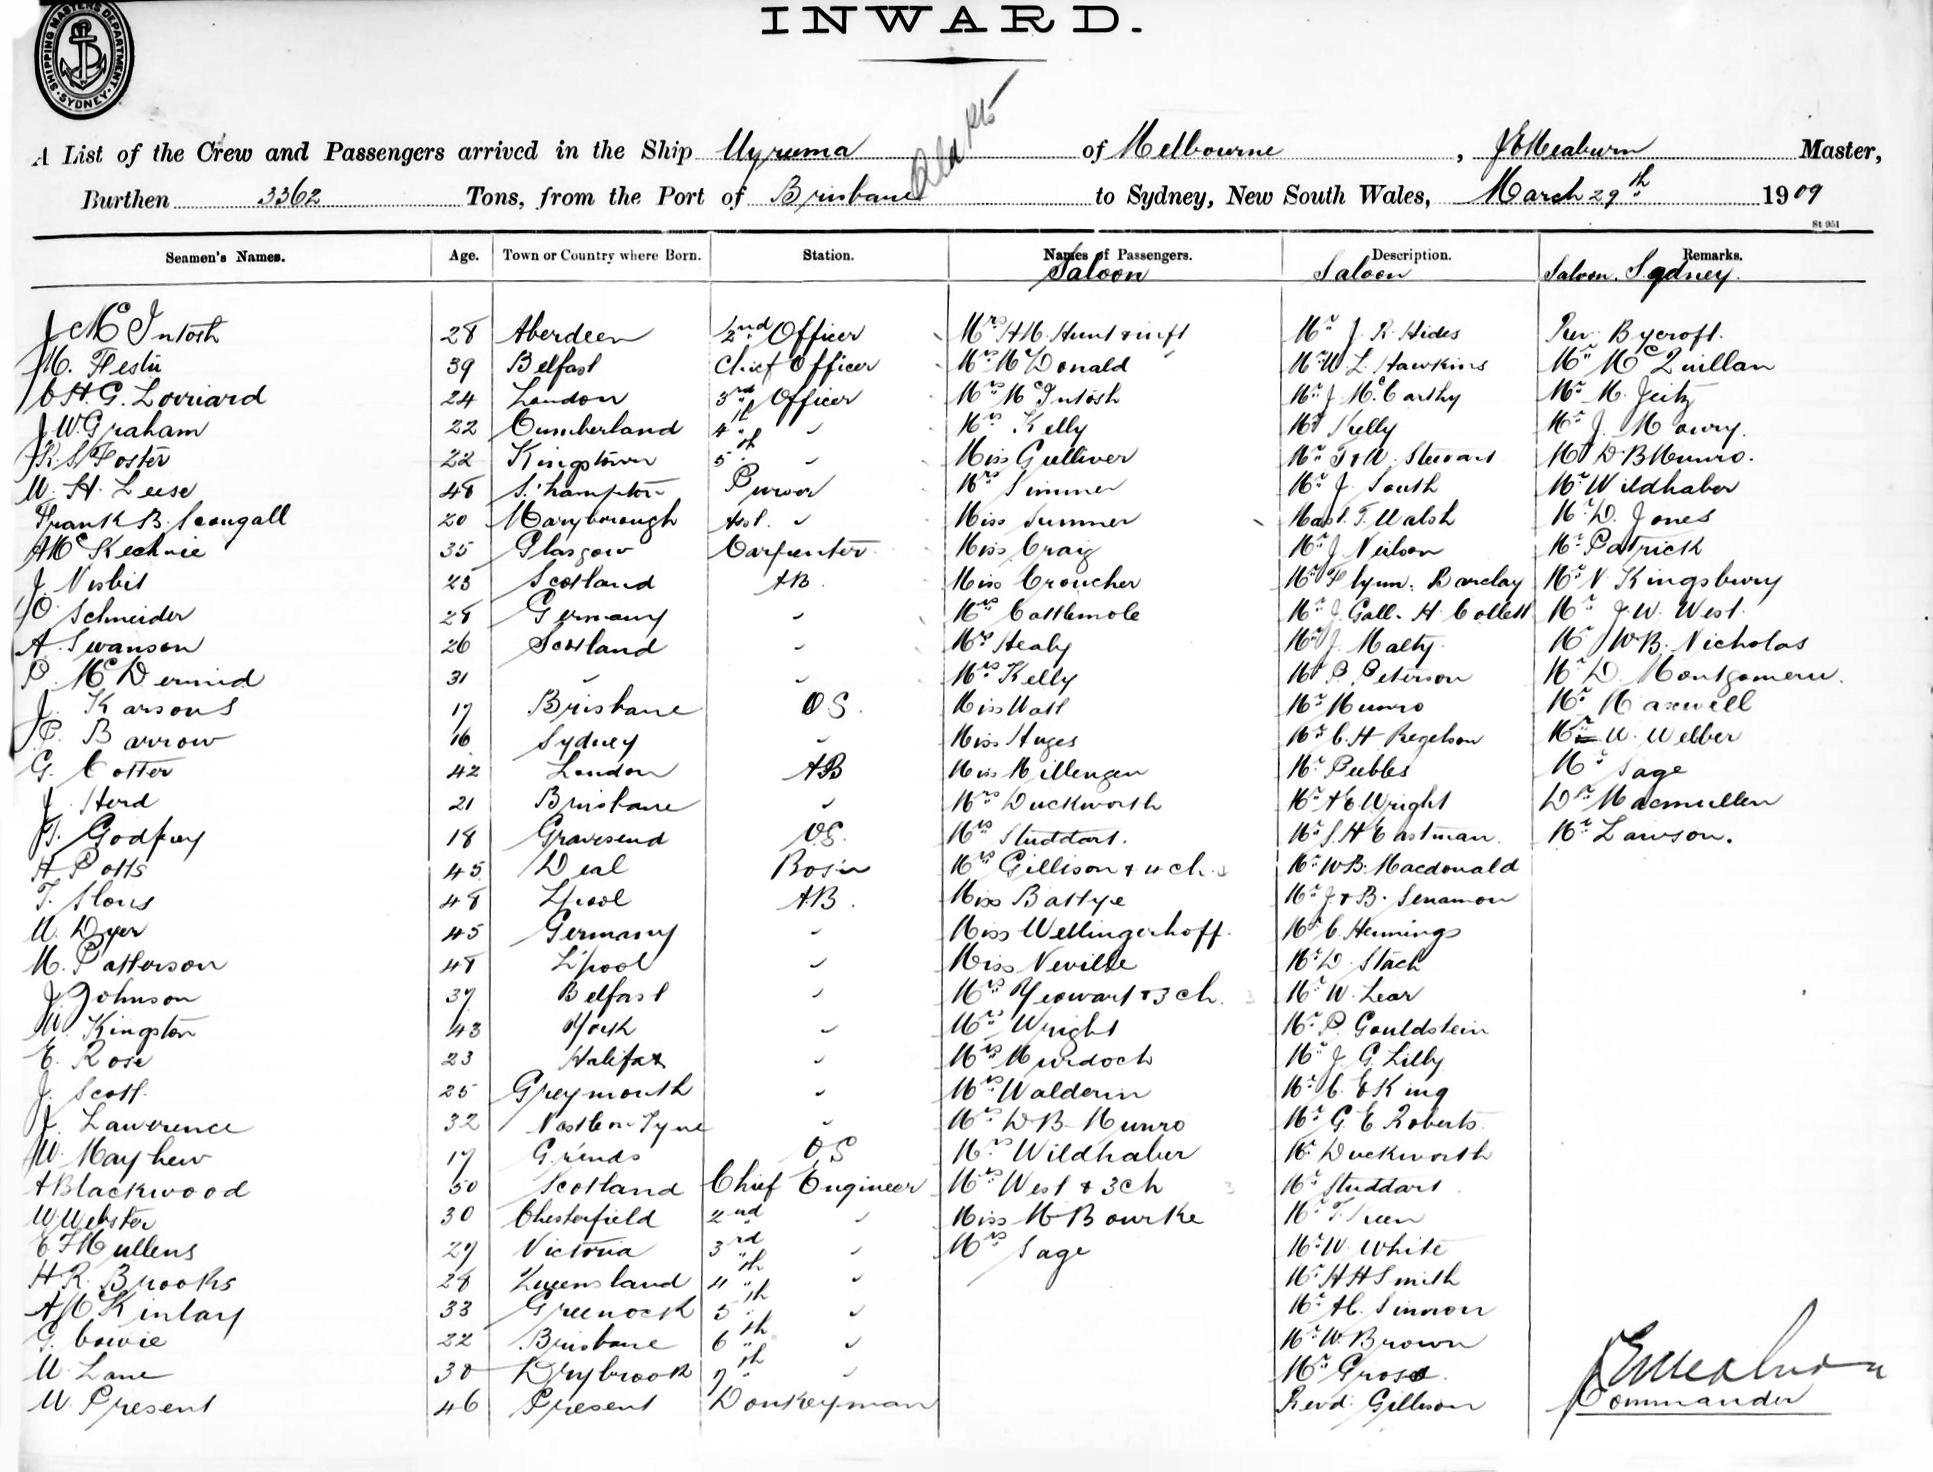 SHIPPING MASTERS DEPARTMENT · SYDNEY ·
INWARD.
A List of the Crew and Passengers arrived in the Ship Wyreema of Melbourne, Meaburn Master,
Burthen 3362 Tons, from the Port of Brisbane to Sydney, New South Wales, March 29th 1909
St 951
Seamen's Names. Age. Town or Country where Born. Station. Names of Passengers. Description. Remarks.
Saloon Saloon Saloon. Sydney.
J McIntosh 28 Aberdeen 2nd Officer Mrs H M Hunt & inft Mr J. R. Hides Rev. Bycroft.
M. 39 Belfast Chief Officer Mrs McDonald Mr W L Hawkins Mr McQuillan
C H. G. Lorriard 24 London 3rd Officer Mrs McIntosh Mr J. McCarthy Mr M. Zeitz
J. W. Graham 22 Cumberland 4th " Mrs Kelly Mr Kelly Mr J. Mowry.
R. S. Foster 22 Kingstown 5th " Miss Gulliver Mr T & W. Stewart Mr D B Munro.
W. H. Leese 48 S.'hampton Purser Mrs Simmer Mr J. South Mr Wildhaber
Frank B. Scougall 20 Maryborough Asst. " Miss Summer Mast. T. Walsh Mr D. Jones
A McKechnie 35 Glasgow Carpenter Miss Craig Mr J. Neilson Mr Patrick
J. Nisbit 23 Scotland AB. Miss Croucher Mr Flynn. Barclay Mr N Kingsbury
O. Schneider 28 Germany " Mrs Cattlemole Mr J. Gall. H Collett Mr J. W. West.
A. Swanson 26 Scotland " Mrs Healy Mr J. Malty. Mr W B. Nicholas
P. McDermid 31 " " Mrs Kelly Mr P. Peterson Mr D. Montgomery.
J. Karsons 17 Brisbane O S. Miss Watt Mr Munro Mr Maxwell
P. Barrow 16 Sydney " Miss Huges Mr C. H Regelson Mr W. Webber
G. Cotter 42 London AB Miss Millengen Mr Peebles Mr Sage
J. Herd 21 Brisbane " Mrs Duckworth Mr A E Wright Dr Macmullen
T. Godfrey 18 Gravesend OS. Mrs Studdart. Mr S. H Eastman. Mr Lawson.
H Potts 45 Deal Bos'n Mrs Gillison & 4 ch. Mr W B. Macdonald
T. 48 L'pool AB. Miss Battye Mr J. & B. Senamon
W. Dyer 45 Germany " Miss Wellingerhoff. Mr C. Hennings
M. Patterson 48 L'pool " Miss Neville Mr D. Stach
J. Johnson 37 Belfast " Mrs Yeowart & 3 ch. 3 Mr W. Lear
W. Kingston 43 York " Mrs Wright Mr P. Gouldstein
E. Rose 23 Halifax " Mrs Murdoch Mr J. G. Lilly
J. Scott. 25 Greymouth " Mrs Walderin Mr C. E King
J. Lawerence 32 Tyne " Mrs D B. Munro Mr G E Roberts.
W. Mayhew 17 G.rends O S Mrs Wildhaber Mr Duckworth
A Blackwood 50 Scotland Chief Engineer Mrs West & 3 ch 3 Mr Studdart
W Webster 30 Chesterfield 2nd " Miss M Bourke Mr T. Keen
E F Mullens 27 Victoria 3rd " Mrs Sage Mr W. White
H R. Brooks 28 Queensland 4th " Mr H H Smith
A McKinlay 33 Greenock 5th " Mr A C. Sinnon
G. Cowie 22 Brisbane 6th " Mr W. Brown
W. Lane 30 Drybrook 7th " Mr Grose.
W. Present 46 Present Donkeyman Revd. Gillison
Commander